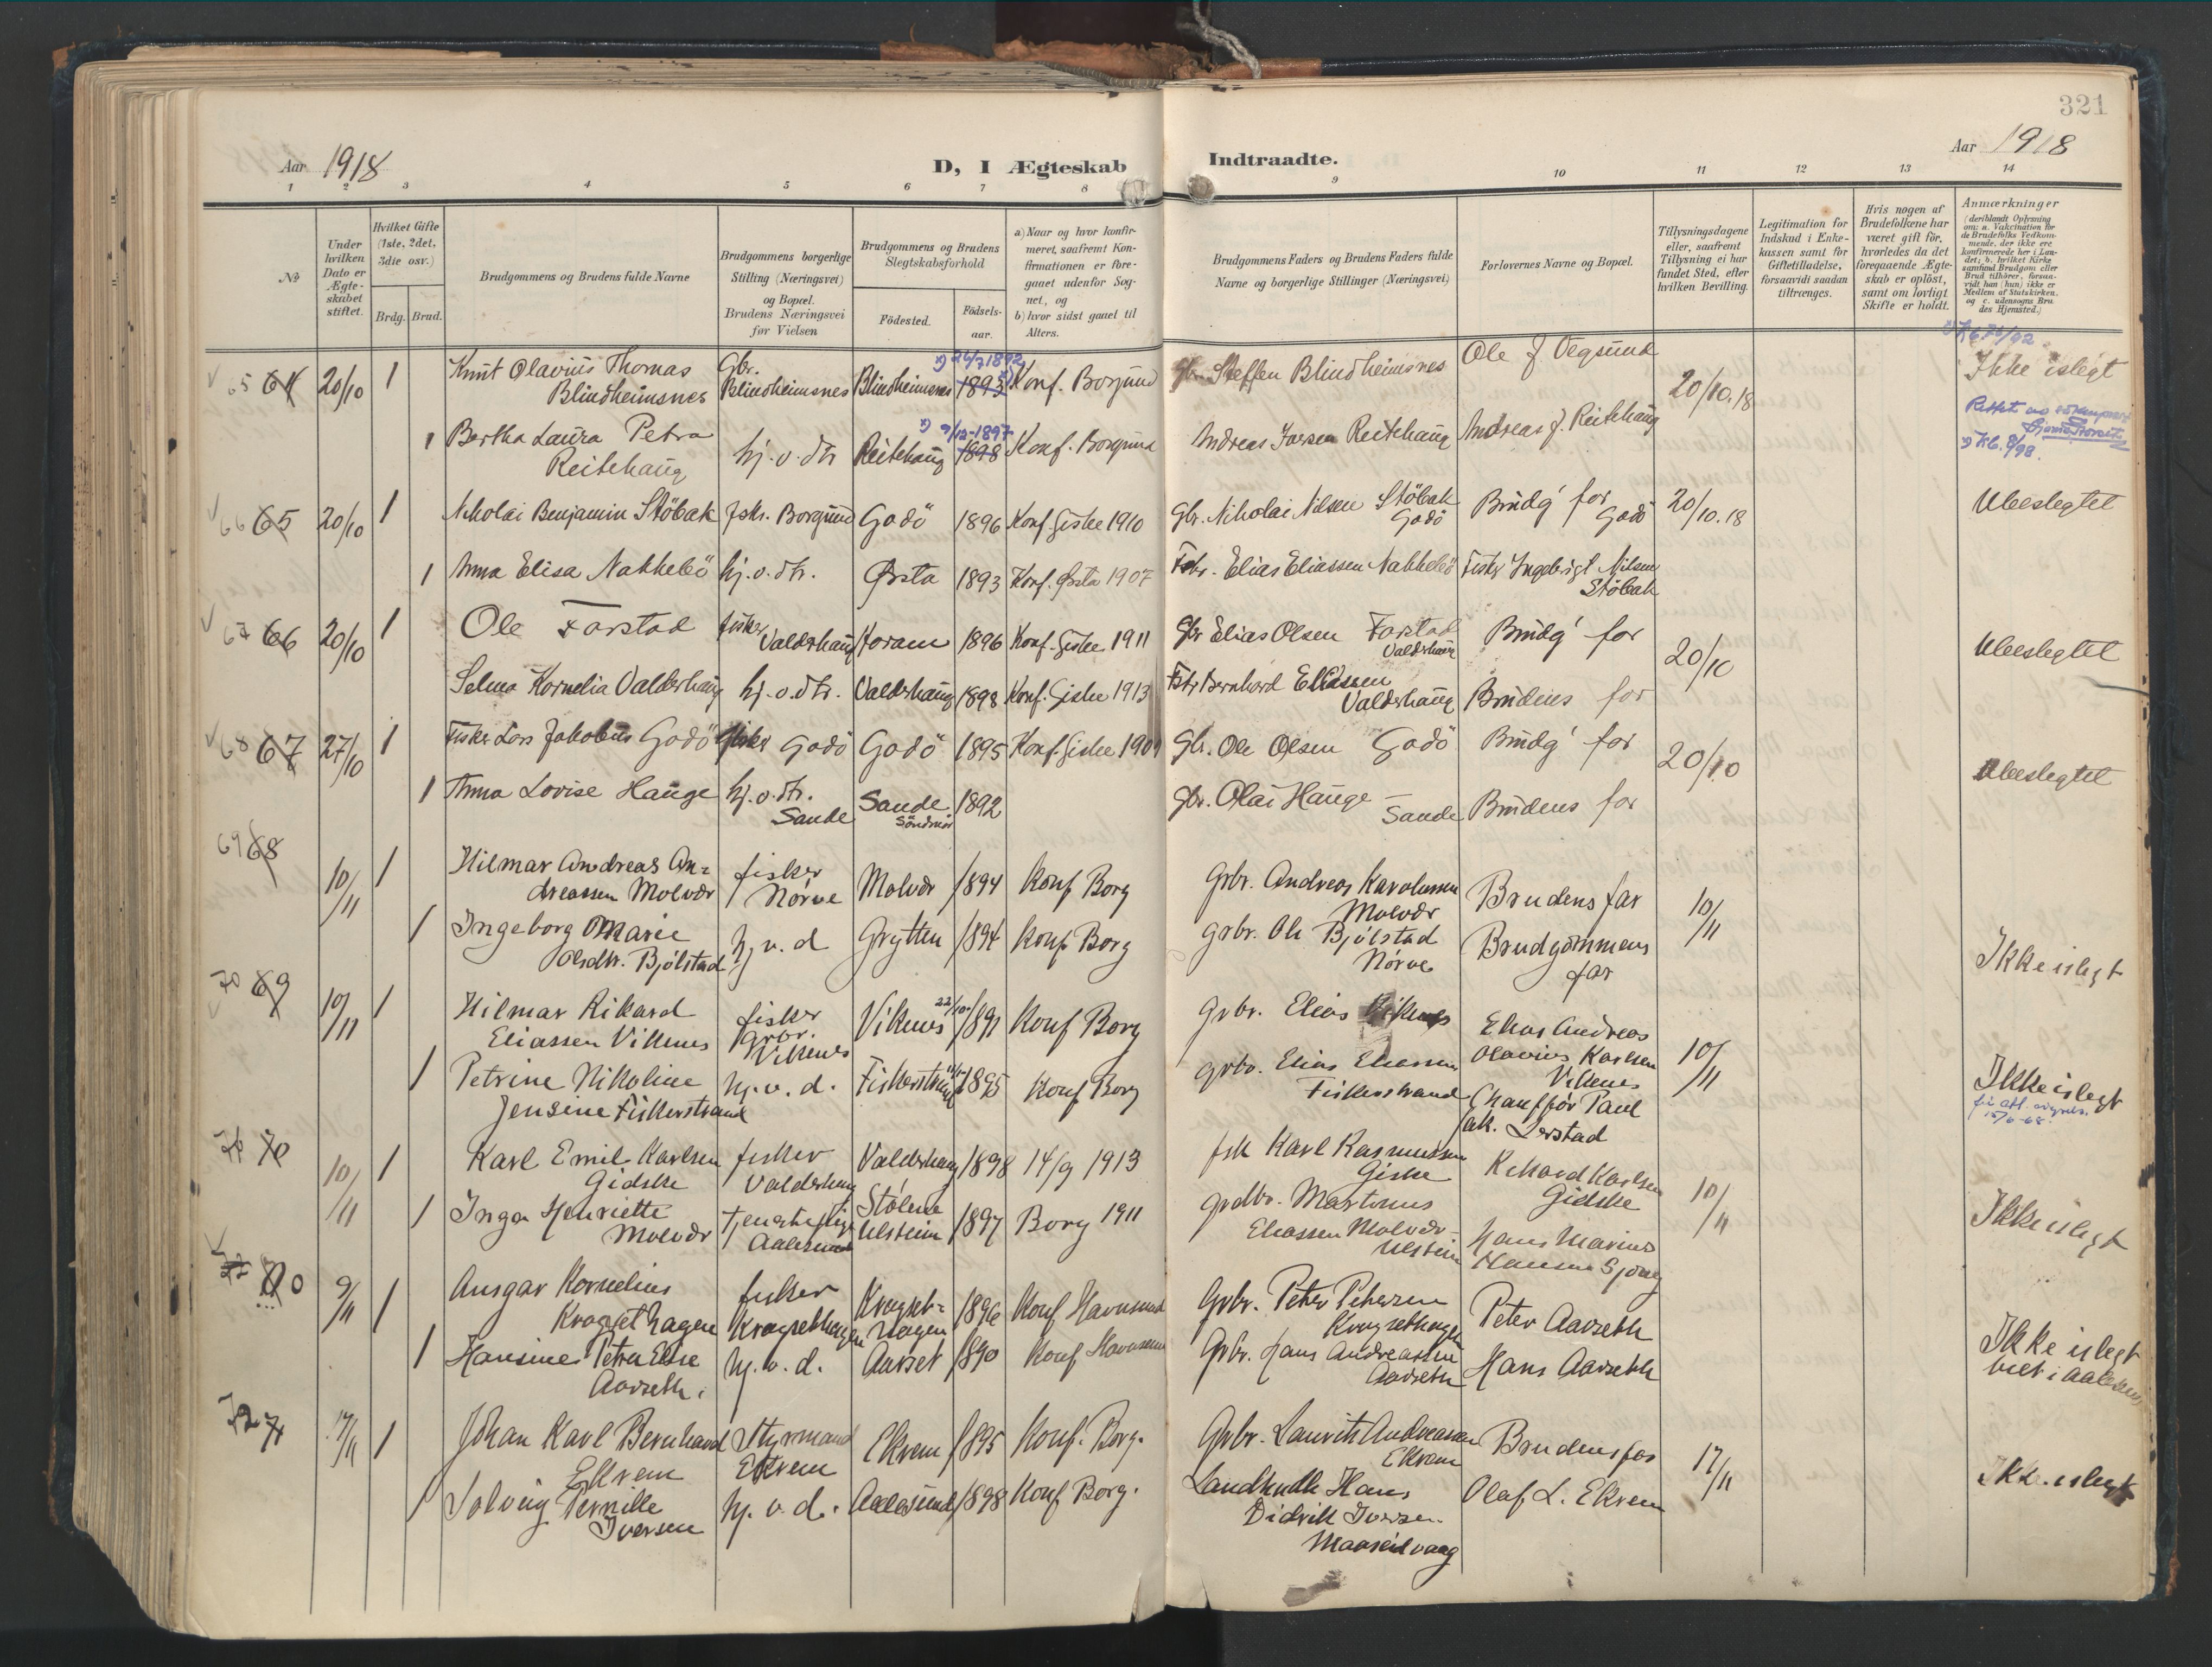 321
Aar 1918
D, I Ægteskab Indtraadte.
Aar 1918
1 2 3 4 5 6 7 8 9 10 11 12 13 14
№
Under hvilken Dato er Ægte-skabet stiftet.
Hvilket Gifte (1ste, 2det, 3die osv.)
Brdg. Brud.
Brudgommens og Brudens fulde Navne
Brudgommens borgerlige Stilling (Næringsvei) og Bopæl. Brudens Næringsvei før Vielsen
Brudgommens og Brudens Slegtskabsforhold
Fødested. Fødsels-aar.
a) Naar og hvor konfir-meret, saafremt Kon-firmationen er fore-gaaet udenfor Sog-net, og
b) hvor sidst gaaet til Alters.
Brudgommens Faders og Brudens Faders fulde Navne og borgerlige Stillinger (Næringsvei)
Forlovernes Navne og Bopæl.
Tillysningsdagene eller, saafremt Tillysning ei har fundet Sted, efter hvilken Bevilling.
Legitimation for Indskud i Enke-kassen samt for Giftetilladelse, forsaavidt saadan tiltrænges.
Hvis nogen af Brudefolkene har været gift før, hvorledes da det foregaaende Ægte-skab er opløst, samt om lovligt Skifte er holdt.
Anmærkninger
(deriblandt Oplysning om: a. Vakcination for de Brudefolks Vedkom-mende, der ikke ere konfirmerede her i Lan-det; b. hvilket Kirke samfund Brudgom eller Brud tilhører, forsaa-vidt han (hun) ikke er Medlem af Statskirken, og c. udensogns Bru des Hjemsted.)
65 64 20/10 1 Knut Olavius Thomas Blindheimsnes Gbr. Blindheimsnes Blindheimsnes 24/7 1892 1893 Konf. Borgund Gbr. Steffen Blindheimsnes Ole J Vegsund 20/10.18 Ikke islegt
1 Bertha Laura Petra Reitehaug hj. v. dtr Reitehaug 9/12-1897 1898 Konf. Borgund Andreas Iversen Reitehaug Andreas J. Reitehaug
66 65 20/10 1 Nikolai Benjamin Stöbak fskr. Borgund Godö 1896 Konf. Giske 1910 Gbr. Nikolai Nilsen Stöbak Godö Brudg' far Godö 20/10.18 Ubeslegtet
1 Anna Elisa Nakkebö hj. v. dtr. Ørsta 1893 Konf. Ørsta 1907 Elias Eliassen Nakkebö Fisker Ingebrigt Nilsen Stöbak
67 66 20/10 1 Ole Farstad fisker Valderhaug Haram 1896 Konf. Giske 1911 Gbr Elias Olsen Farstad Valderhaug Brudg' far 20/10 Ubeslegtet
Selma Kornelia Valderhaug hj. v. dtr. Valderhaug 1898 Konf. Giske 1913 Bernhard Eliassen Valderhaug Brudens far
68 67 27/10 1 Fisker Lars Jakobus Godö fisker Godö Godö 1895 Konf. Giske 1909 Gbr. Ole Olsen Godö Brudg' far 20/10 Ubeslegtet
1 Anna Lovise Hauge hj. v. dtr. Sande Sande Söndmör 1892 Gbr. Olai Hauge Sande Brudens far
69 68 10/11 1 Hilmar Andreas An=dreassen Molvær fisker Nørve Molvær 1894 Konf Borg Grbr. Andreas Karolussen Molvær Brudens far 10/11
1 Ingeborg Marie Olsdtr. Bjølstad hj. v. d Grytten 1894 Konf Borg Grbr. Ole Bjølstad Nørve Brudgommens far Ikke islegt
70 69 10/11 1 Hilmar Rikard Eliassen Viknes fisker Grbr. Viknes Viknes 22/10 1891 Konf Borg Grbr. Elias Viknes Elias Andreas Olavius Karlsen Viknes 10/11
1 Petrine Nikoline Jensine Fiskerstrand hj. v. d. Fiskerstrand 1895 Konf Borg Grbr. Elias Eliassen Fiskerstrand Chauffør Paul Jak. Lerstad Ikke islegt
70 10/11 1 Karl Emil Karlsen Gidske fisker Valderhaug Valderhaug 1898 14/9 1913 fsk Karl Rasmussen Giske Rikard Karlsen Gidske 10/11
1 Inga Henriette Molvær Tjenestepige Aalesund Ulstein 1897 Borg 1911 Grdbr. Martinus Eliassen Molvær Ulstein Hans Marius Hansen Ikke islegt
70 9/11 1 Ansgar Kornelius Kragset hagen fisker Kragsethagen Kragset=hagen 1896 Konf Havnsund Grbr. Peter Petersen Kragsethagen Peter Aarseth
1 Hansine Petra Elise Aarseth. hj. v. d. Aarset 1890 Konf Havnsund Grbr. Hans Andreassen Aarseth Hans Aarseth Ikke islegt viet i Aalesund
72 71 17/11 1 Johan Karl Bernhard Ekrem Styrmand Ekrem Ekrem 1895 Konf. Borg. Grbr. Laurits Andreassen Ekrem Brudens far 17/11
1 Solveig Pernille Iversen hj. v. d. Aalesund 1898 Konf Borg. Landhndl. Hans Didrik Iversen Maaseidvaag Olaf L. Ekrem Ikke islegt